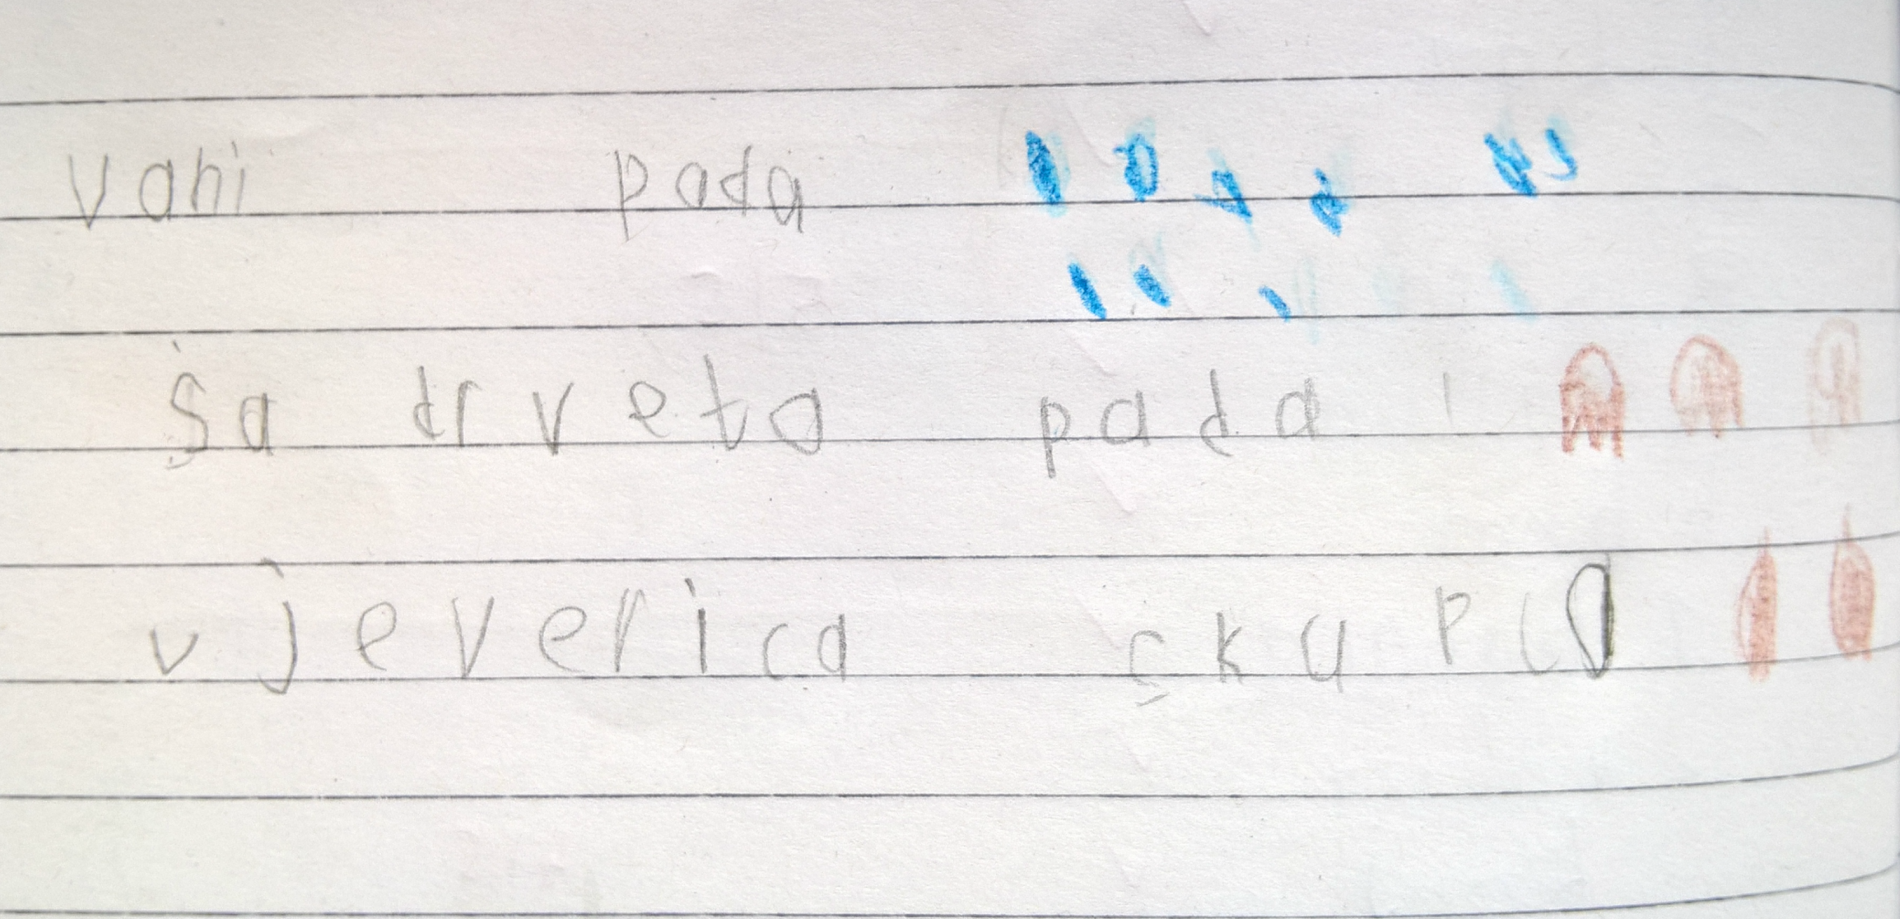 Vani pada
Sa drveta pada
vjeverica skupla